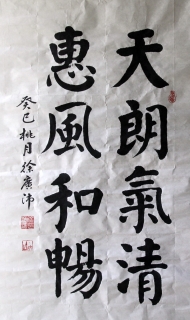 天朗氣清
惠風和暢
癸巳桃月徐廣沛